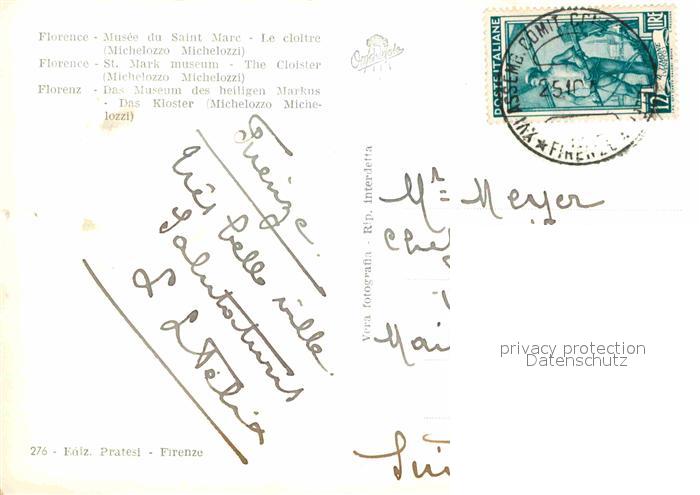 Florence - Musée du Saint Marc - Le cloître
(Michelozzo Michelozzi)
Florence - St. Mark museum - The Cloister
(Michelozzo Michelozzi)
Florenz - Das Museum des heiligen Markus
- Das Kloster (Michelozzo Miche-
lozzi)
POSTE ITALIANE
LIRE
12
FIRENZE
Firenze.
très belle ville.
Salutations
Vera fotografia - Rip. interdetta
Mr Meyer
privacy protection
Datenschutz
276 - Ediz. Pratesi - Firenze